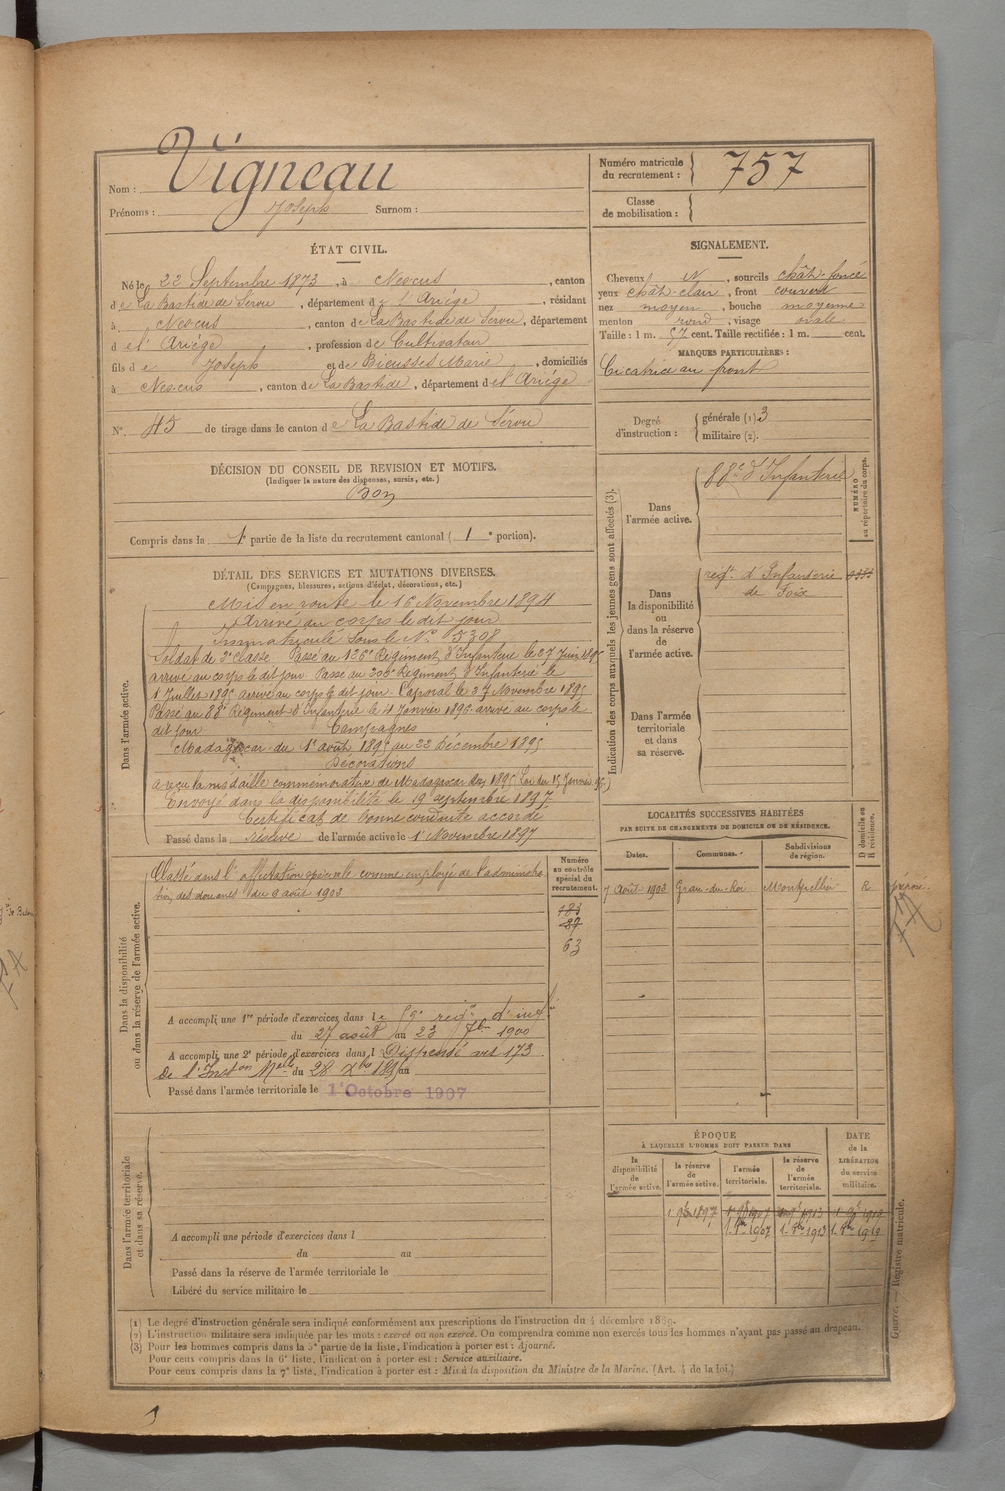 Nom : Vigneau
Prénoms : Joseph Surnom :
Numéro matricule du recrutement : 757
Classe de mobilisation :
ÉTAT CIVIL.
Né le 22 Septembre 1873, à Nescus, canton
de La Bastide de Sérou, département de l'Ariège, résidant
à Nescus, canton de La Bastide de Sérou, département
de l'Ariège, profession de Cultivateur
fils de Joseph et de Marie, domiciliés
à Nescus, canton de La Bastide, département de l'Ariège
N° 45 de tirage dans le canton de La Bastide de Sérou
SIGNALEMENT.
Cheveux N, sourcils chât-foncé
yeux chât-clair, front couvert
nez moyen, bouche moyenne
menton rond, visage ovale
Taille : 1 m. 57 cent. Taille rectifiée : 1 m. cent.
MARQUES PARTICULIÈRES :
Cicatrice au front
Degré d'instruction : générale (1) 3
militaire (2).
DÉCISION DU CONSEIL DE REVISION ET MOTIFS.
(Indiquer la nature des dispenses, sursis, etc.)
Bon
Compris dans la 1e partie de la liste du recrutement cantonal ( 1 e portion).
Indication des corps auxquels les jeunes gens sont affectés (3).
NUMÉRO au répertoire du corps.
Dans l'armée active.
88e d'Infanterie
Dans la disponibilité ou dans la réserve de l'armée active.
régt. d'Infanterie
de Foix
Dans l'armée territoriale et dans sa réserve.
DÉTAIL DES SERVICES ET MUTATIONS DIVERSES.
(Campagnes, blessures, actions d'éclat, décorations, etc.)
Dans l'armée active.
Mis en route le 16 Novembre 1894
Arrivé au corps le dit jour
Immatriculé sous le N° 5308
Soldat de 2e classe Passé au 126e Régiment d'Infanterie le 27 Juin 1895
arrivé au corps le dit jour Passé au 200e Régiment d'Infanterie le
1 Juillet 1895 arrivé au corps le dit jour. Caporal le 27 Novembre 1895
Passé au 88e Régiment d'Infanterie le 4 Janvier 1896 arrivé au corps le
dit jour Campagnes
Madagascar du 1er août 1895 au 22 Décembre 1895
Décorations
a reçu la médaille commémorative de Madagascar 1895 Loi du 15 Janvier 96)
Envoyé dans la disponibilité le 19 septembre 1897
Certificat de bonne conduite accordé
Passé dans la réserve de l'armée active le 1 Novembre 1897
LOCALITÉS SUCCESSIVES HABITÉES
PAR SUITE DE CHANGEMENTS DE DOMICILE OU DE RÉSIDENCE.
Dates. Communes. Subdivisions de région. D domicile ou R résidence.
7 Août 1903 Grau-du-Roi Montpellier R préposé
Dans la disponibilité ou dans la réserve de l'armée active.
Numéro au contrôle spécial du recrutement.
Classé dans l'affectation spéciale comme employé de l'administra
tion des douanes du 6 août 1903
63
A accompli une 1re période d'exercices dans le régt d'inf
du 27 août au 23 7bre 1900
A accompli une 2e période d'exercices dans l Dispensé art 173
de l'Inston Melle du 28 Xbre 1895 au
Passé dans l'armée territoriale le 1 Octobre 1907
Dans l'armée territoriale et dans sa réserve.
A accompli une période d'exercices dans l
du au
Passé dans la réserve de l'armée territoriale le
Libéré du service militaire le
ÉPOQUE
À LAQUELLE L'HOMME DOIT PASSER DANS
la disponibilité de l'armée active. la réserve de l'armée active. l'armée territoriale. la réserve de l'armée territoriale.
DATE de la LIBÉRATION du service militaire.
1 9bre 1897
1. 8bre 1907 1. 8bre 1913 1. 8bre 1919
Guerre. — Registre matricule.
(1) Le degré d'instruction générale sera indiqué conformément aux prescriptions de l'instruction du 4 décembre 1889.
(2) L'instruction militaire sera indiquée par les mots : exercé ou non exercé. On comprendra comme non exercés tous les hommes n'ayant pas passé au drapeau.
(3) Pour les hommes compris dans la 5e partie de la liste, l'indication à porter est : Ajourné.
Pour ceux compris dans la 6e liste, l'indication à porter est : Service auxiliaire.
Pour ceux compris dans la 7e liste, l'indication à porter est : Mis à la disposition du Ministre de la Marine. (Art. 4 de la loi.)